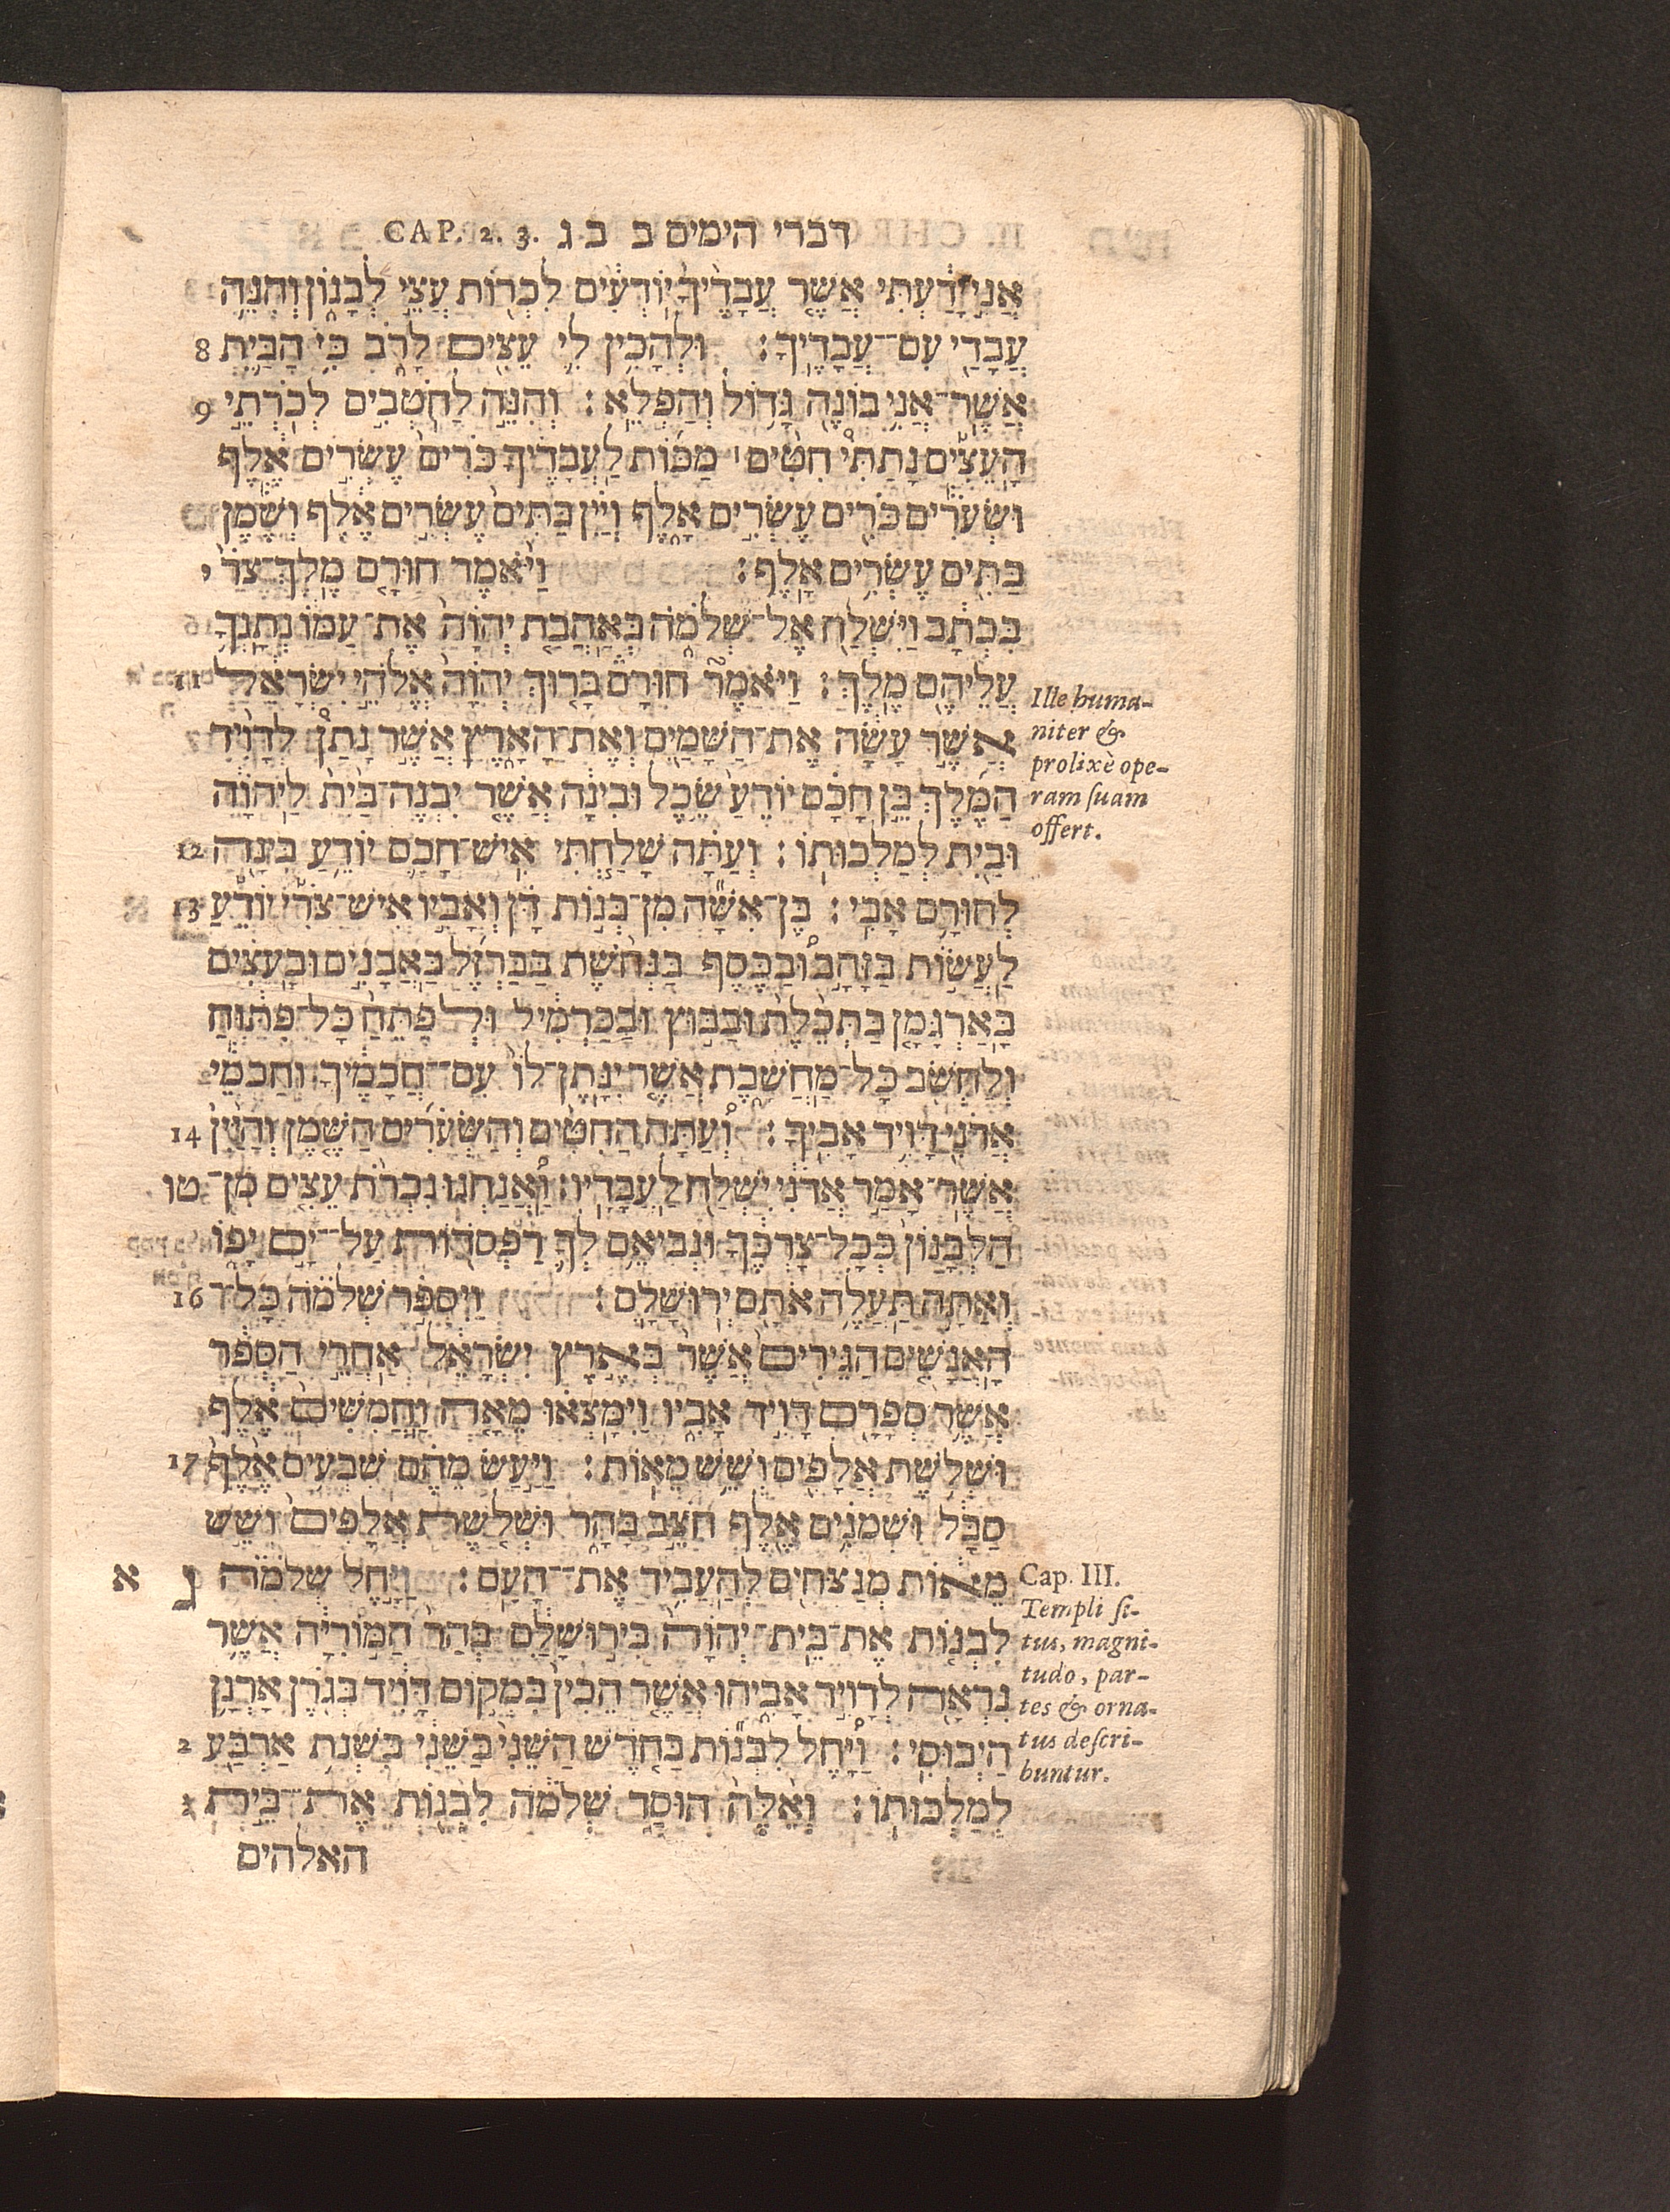 דברי הימים ב ב ג CAP. 2. 3.
אֲנִי יָדַעְתִּי אֲשֶׁר עֲבָדֶיךָ יוֹדְעִים לִכְרוֹת עֲצֵי לְבָנוֹן וְהִנֵּה
עֲבָדַי עִם־עֲבָדֶיךָ׃ וּלְהָכִין לִי עֵצִים לָרֹב כִּי הַבַּיִת 8
אֲשֶׁר־אֲנִי בוֹנֶה גָּדוֹל וְהַפְלֵא׃ וְהִנֵּה לַחֹטְבִים לְכֹרְתֵי 9
הָעֵצִים נָתַתִּי חִטִּים׀ מַכּוֹת לַעֲבָדֶיךָ כֹּרִים עֶשְׂרִים אֶלֶף
וּשְׂעֹרִים כֹּרִים עֶשְׂרִים אָלֶף וְיַיִן בַּתִּים עֶשְׂרִים אֶלֶף וְשֶׁמֶן
בַּתִּים עֶשְׂרִים אָלֶף׃ וַיֹּאמֶר חוּרָם מֶלֶךְ־צֹר י
בִּכְתָב וַיִּשְׁלַח אֶל־שְׁלֹמֹה בְּאַהֲבַת יְהוָֹה אֶת־עַמּוֹ נְתָנְךָ
עֲלֵיהֶם מֶלֶךְ׃ וַיֹּאמֶר חוּרָם בָּרוּךְ יְהוָֹה אֱלֹהֵי יִשְׂרָאֵל 11
אֲשֶׁר עָשָׂה אֶת־הַשָּׁמַיִם וְאֶת־הָאָרֶץ אֲשֶׁר נָתַן לְדָוִיד
הַמֶּלֶךְ בֵּן חָכָם יוֹדֵעַ שֵׂכֶל וּבִינָה אֲשֶׁר יִבְנֶה־בַּיִת לַיהוָֹה
וּבַיִת לְמַלְכוּתוֹ׃ וְעַתָּה שָׁלַחְתִּי אִישׁ־חָכָם יוֹדֵעַ בִּינָה 12
לְחוּרָם אָבִי׃ בֶּן־אִשָּׁה מִן־בְּנוֹת דָּן וְאָבִיו אִישׁ־צֹרִי יוֹדֵעַ 13
לַעֲשׂוֹת בַּזָּהָב וּבַכֶּסֶף בַּנְּחֹשֶׁת בַּבַּרְזֶל בָּאֲבָנִים וּבָעֵצִים
בָּאַרְגָּמָן בַּתְּכֵלֶת וּבַבּוּץ וּבַכַּרְמִיל וּלְפַתֵּחַ כָּל־פִּתּוּחַ
וְלַחְשֹׁב כָּל־מַחֲשָׁבֶת אֲשֶׁר יִנָּתֶן־לוֹ עִם־חֲכָמֶיךָ וְחַכְמֵי
אֲדֹנִי דָּוִיד אָבִיךָ׃ וְעַתָּה הַחִטִּים וְהַשְּׂעֹרִים הַשֶּׁמֶן וְהַיַּיִן 14
אֲשֶׁר־אָמַר אֲדֹנִי יִשְׁלַח לַעֲבָדָיו׃ וַאֲנַחְנוּ נִכְרֹת עֵצִים מִן־ טו
הַלְּבָנוֹן כְּכָל־צָרְכֶּךָ וּנְבִיאֵם לְךָ רַפְסֹדוֹת עַל־יָם יָפוֹ
וְאַתָּה תַּעֲלֶה אֹתָם יְרוּשָׁלִָם׃ וַיִּסְפֹּר שְׁלֹמֹה כָּל־ 16
הָאֲנָשִׁים הַגֵּירִים אֲשֶׁר בְּאֶרֶץ יִשְׂרָאֵל אַחֲרֵי הַסְּפָר
אֲשֶׁר סְפָרָם דָּוִיד אָבִיו וַיִּמָּצְאוּ מֵאָה וַחֲמִשִּׁים אֶלֶף
וּשְׁלֹשֶׁת אֲלָפִים וְשֵׁשׁ מֵאוֹת׃ וַיַּעַשׂ מֵהֶם שִׁבְעִים אֶלֶף 17
סַבָּל וּשְׁמֹנִים אֶלֶף חֹצֵב בָּהָר וּשְׁלֹשֶׁת אֲלָפִים וְשֵׁשׁ
מֵאוֹת מְנַצְּחִים לְהַעֲבִיד אֶת־הָעָם׃ וַיָּחֶל שְׁלֹמֹה ג א
לִבְנוֹת אֶת־בֵּית־יְהוָֹה בִּירוּשָׁלִַם בְּהַר הַמּוֹרִיָּה אֲשֶׁר
נִרְאָה לְדָוִיד אָבִיהוּ אֲשֶׁר הֵכִין בִּמְקוֹם דָּוִיד בְּגֹרֶן אָרְנָן
הַיְבוּסִי׃ וַיָּחֶל לִבְנוֹת בַּחֹדֶשׁ הַשֵּׁנִי בַּשֵּׁנִי בִּשְׁנַת אַרְבַּע 2
לְמַלְכוּתוֹ׃ וְאֵלֶּה הוּסַד שְׁלֹמֹה לִבְנוֹת אֶת־בֵּית 3
האלהים
Ille huma-
niter &
prolixè ope-
ram suam
offert.
Cap. III.
Templi si-
tus, magni-
tudo, par-
tes & orna-
tus descri-
buntur.